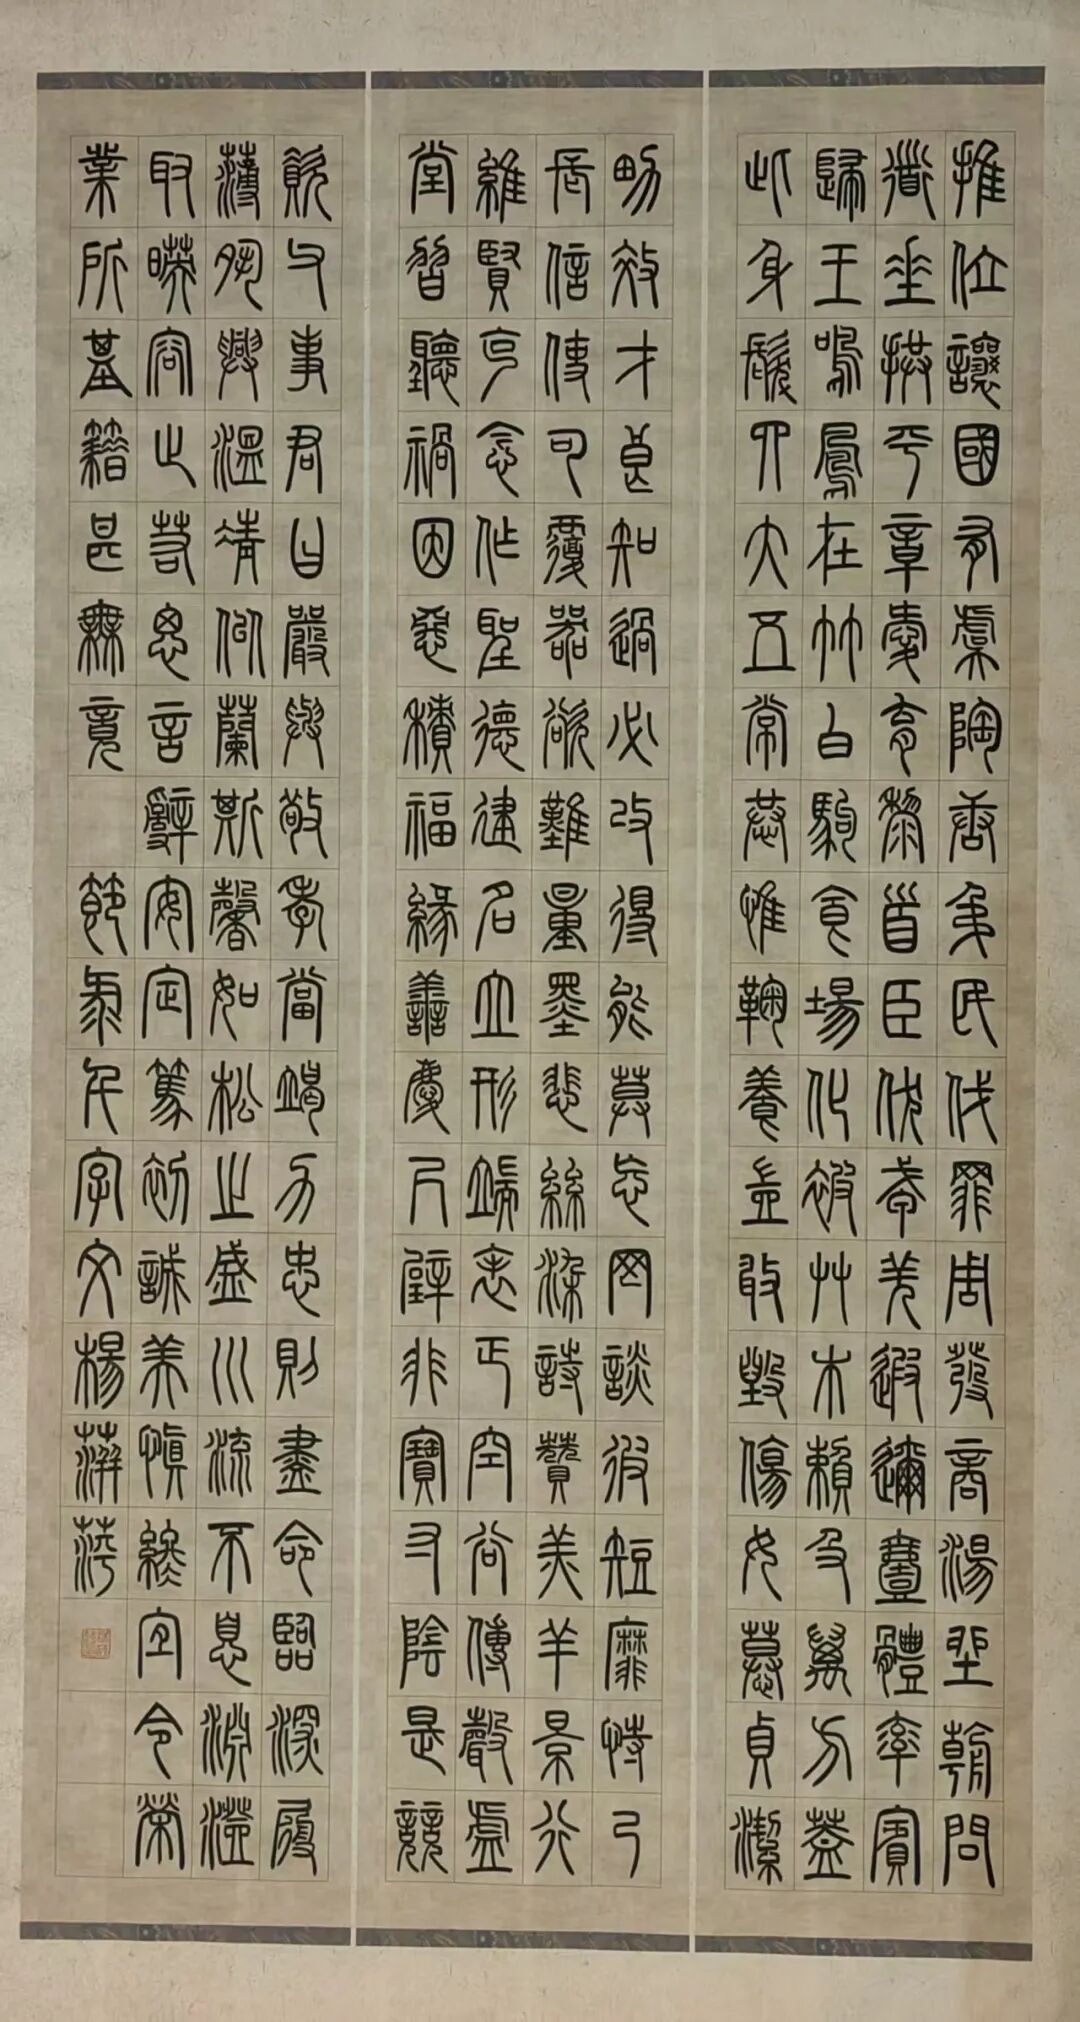 推位讓國有虞陶唐弔民伐罪周發商湯坐朝問
道垂拱平章愛育黎首臣伏戎羌遐邇壹體率賓
歸王鳴鳳在竹白駒食場化被草木賴及萬方蓋
此身髮四大五常恭惟鞠養豈敢毀傷女慕貞潔
男效才良知過必改得能莫忘罔談彼短靡恃己
長信使可覆器欲難量墨悲絲染詩贊羔羊景行
維賢克念作聖德建名立形端表正空谷傳聲虛
堂習聽禍因惡積福緣善慶尺璧非寶寸陰是競
資父事君曰嚴與敬孝當竭力忠則盡命臨深履
薄夙興溫凊似蘭斯馨如松之盛川流不息淵澄
取暎容止若思言辭安定篤初誠美慎終宜令榮
業所基籍甚無竟 節彔千字文楊